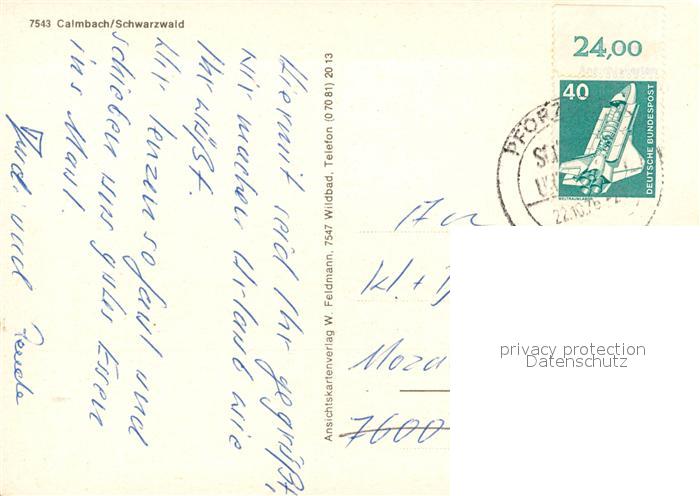 7543 Calmbach/Schwarzwald
Hiermit seid Ihr gegrüßt,
wir machen Urlaub wie
Ihr wißt.
Wir
schieben uns gutes Essen
ins Maul.
und
Ansichtskartenverlag W. Feldmann, 7547 Wildbad, Telefon (0 70 81) 20 13
24,00
40
DEUTSCHE BUNDESPOST
WELTRAUMLABOR
PFORZ
22.10.76
An
Moza
7600
privacy protection
Datenschutz